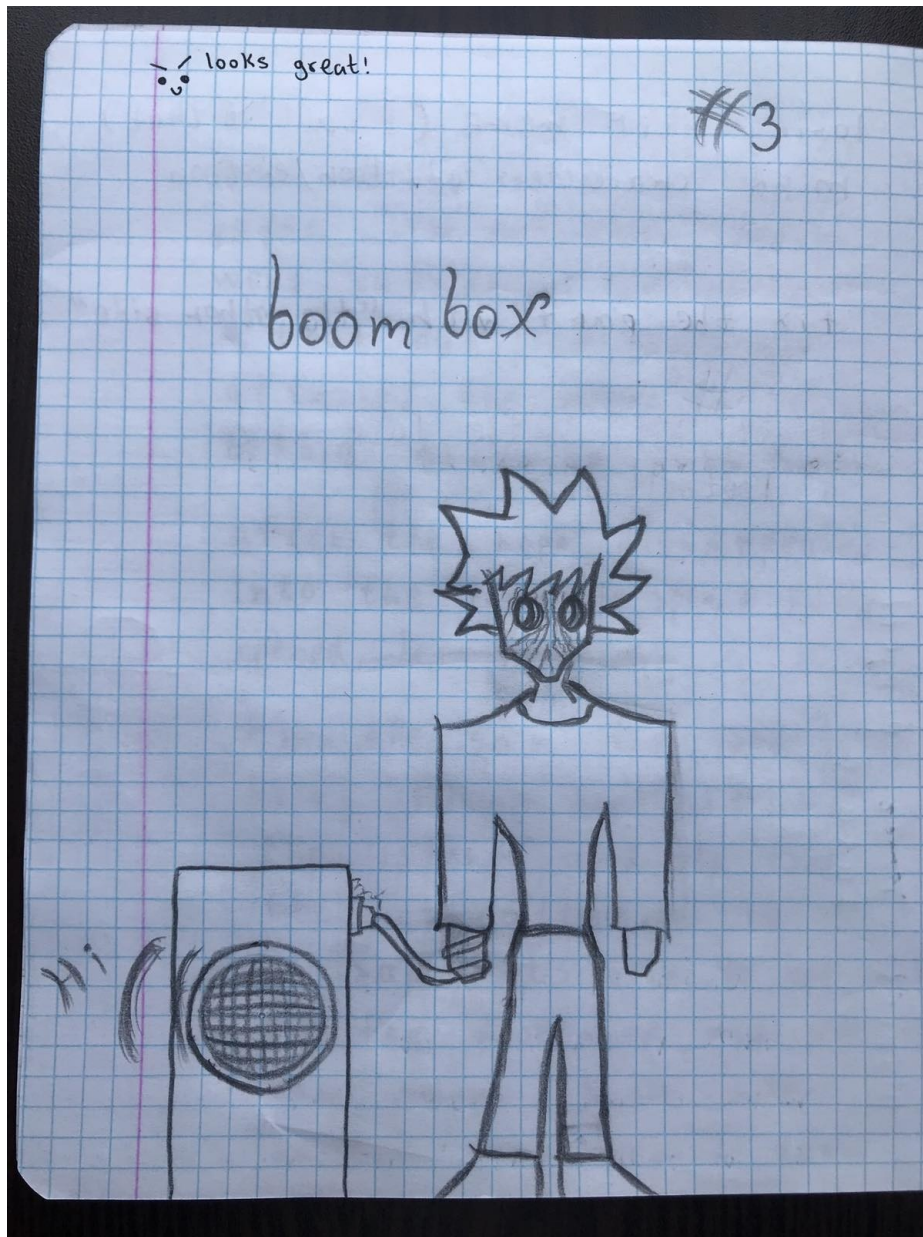 looks great!
#3
boom box
Hi